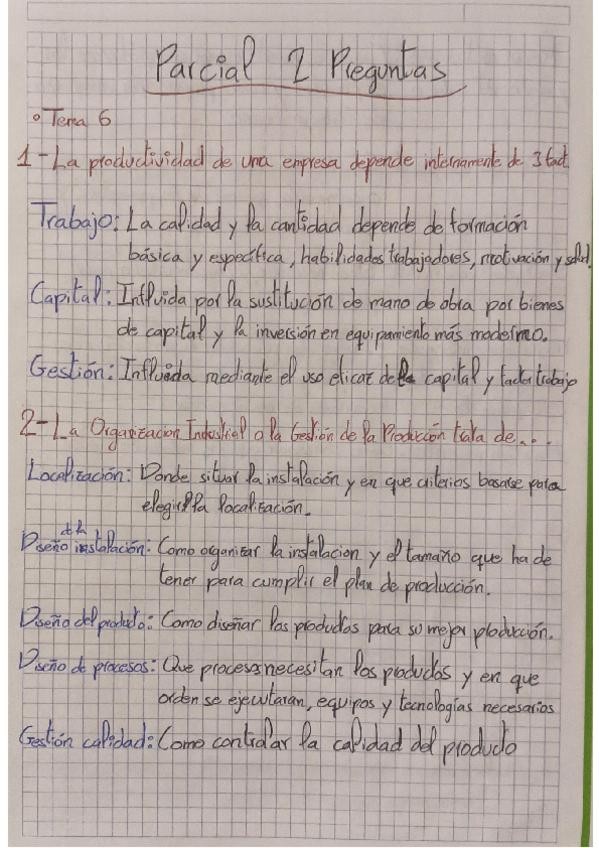 Parcial 2 Preguntas
o Tema 6
1-La productividad de una empresa depende internamente de 3 fact.
Trabajo: La calidad y la cantidad depende de formación
básica y específica, habilidades trabajadores, motivación y salud.
Capital: Influida por la sustitución de mano de obra por bienes
de capital y la inversión en equipamiento más moderno.
Gestión: Influida mediante el uso eficaz de capital y factor trabajo
2-La Organización Industrial o la Gestión de la Producción trata de...
Localización: Donde situar la instalación y en que criterios basarse para
elegir la localización.
Diseño de la instalación: Como organizar la instalacion y el tamaño que ha de
tener para cumplir el plan de producción.
Diseño del producto: Como diseñar los productos para su mejor producción.
Diseño de procesos: Que procesos necesitan los productos y en que
orden se ejecutaran, equipos y tecnologías necesarios
Gestión calidad: Como controlar la calidad del producto